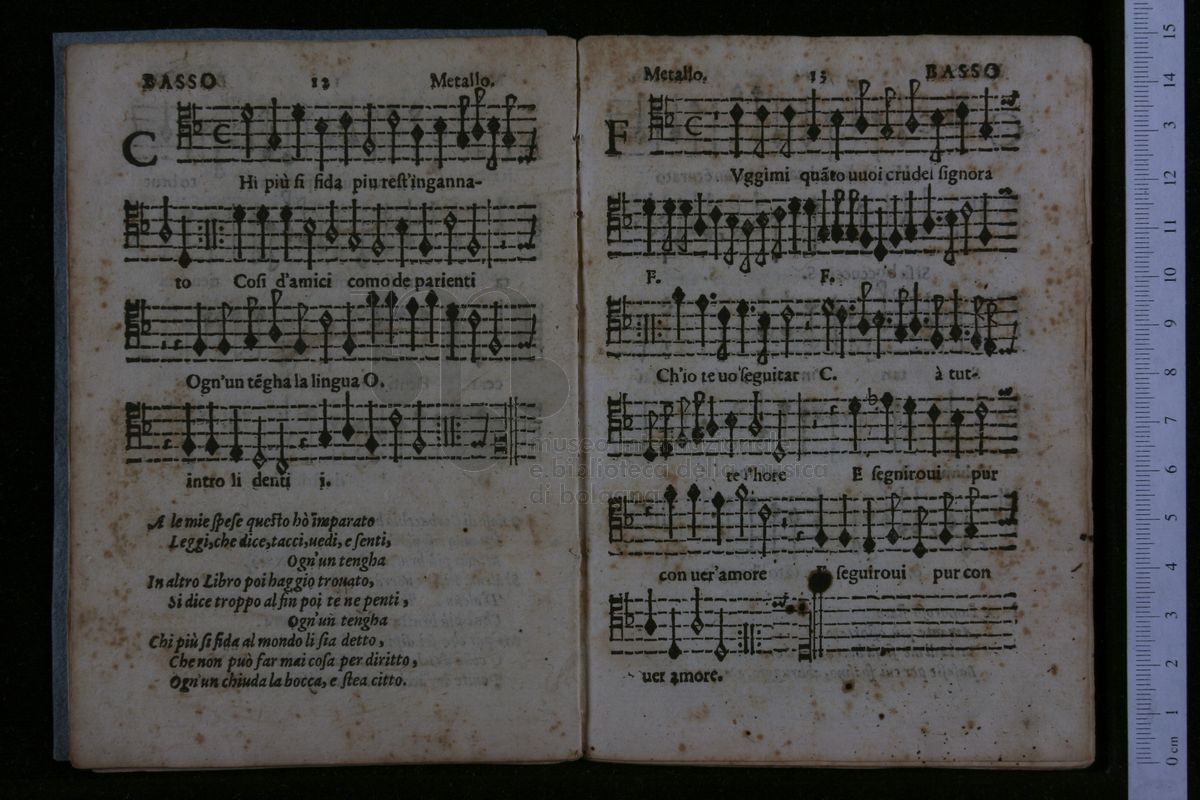 BASSO 12 Metallo.
C
Hi più si fida piu rest'inganna-
to Cosi d'amici como de parienti
Ogn'un tẽgha la lingua O.
intro li denti i.
A le mie spese questo hò imparato
Leggi, che dice, tacci, uedi, e senti,
Ogn'un tengha
In altro Libro poi haggio trouato,
Si dice troppo al fin poi te ne penti,
Ogn'un tengha
Chi più si fida al mondo li sia detto,
Che non può far mai cosa per diritto,
Ogn'un chiuda la bocca, e stea citto.
Metallo. 15 BASSO
F
Vggimi quãto uuoi crudel signora
F. F.
Ch'io te uo seguitar C. à tut-
te l'hore E segniroui pur
con uer'amore E seguiroui pur con
uer amore.
museo internazionale
e biblioteca della musica
di bologna
0 cm 1 2 3 4 5 6 7 8 9 10 11 12 13 14 15